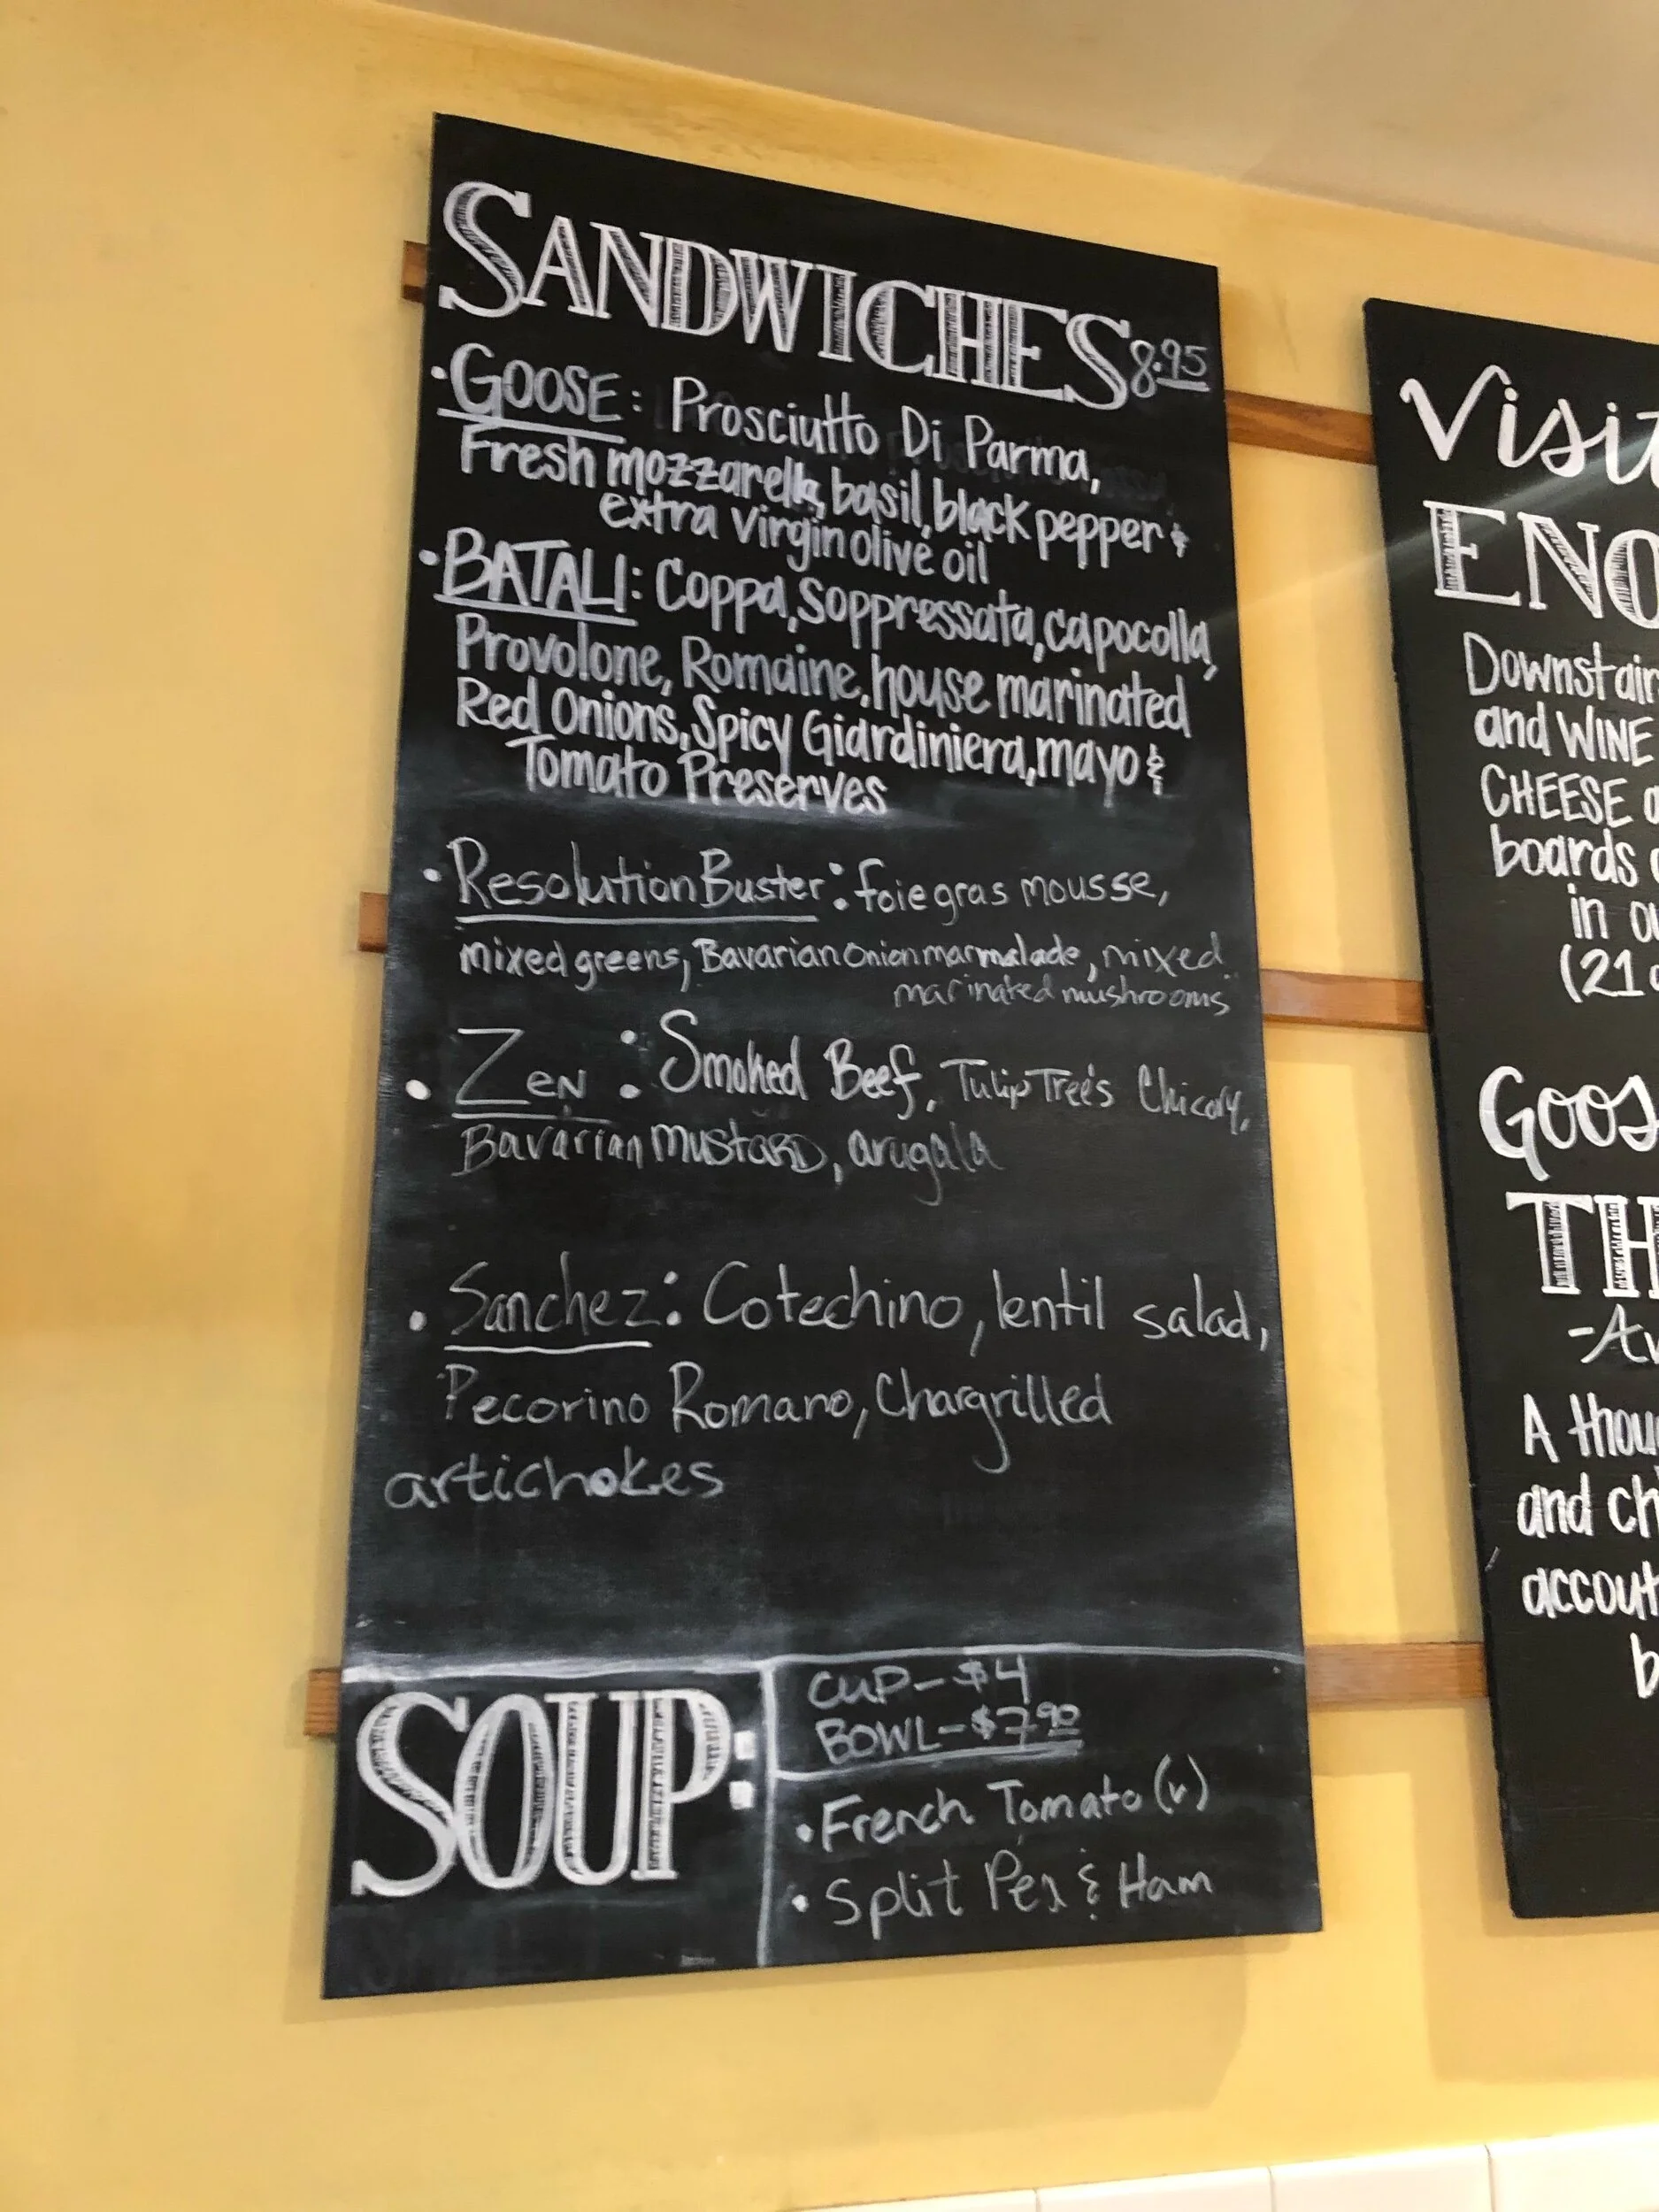 SANDWICHES 8.95
• GOOSE: Prosciutto Di Parma,
Fresh mozzarella, basil, black pepper &
extra virgin olive oil
• BATALI: Coppa, Soppressata, capocolla,
Provolone, Romaine, house marinated
Red Onions, Spicy Giardiniera, mayo &
Tomato Preserves
• Resolution Buster: foie gras mousse,
mixed greens, Bavarian Onion marmalade, mixed
marinated mushrooms
• Zen: Smoked Beef, Tulip Tree's Chicory,
Bavarian Mustard, arugala
• Sanchez: Cotechino, lentil salad,
Pecorino Romano, Chargrilled
artichokes
SOUP:
CUP - $4
BOWL - $7.90
• French Tomato (v)
• Split Pea & Ham
Visit
ENO
Downstair
and WINE
CHEESE
boards
in
(21
Goos
TH
A thou
and ch
accout
b